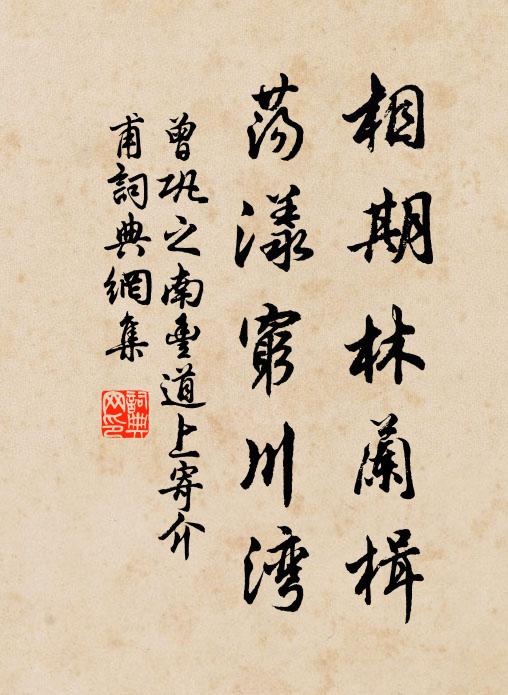 相期林蘭楫
蕩漾窮川湾
曾巩之南豊道上寄介
甫詞典網集
詞典
网印